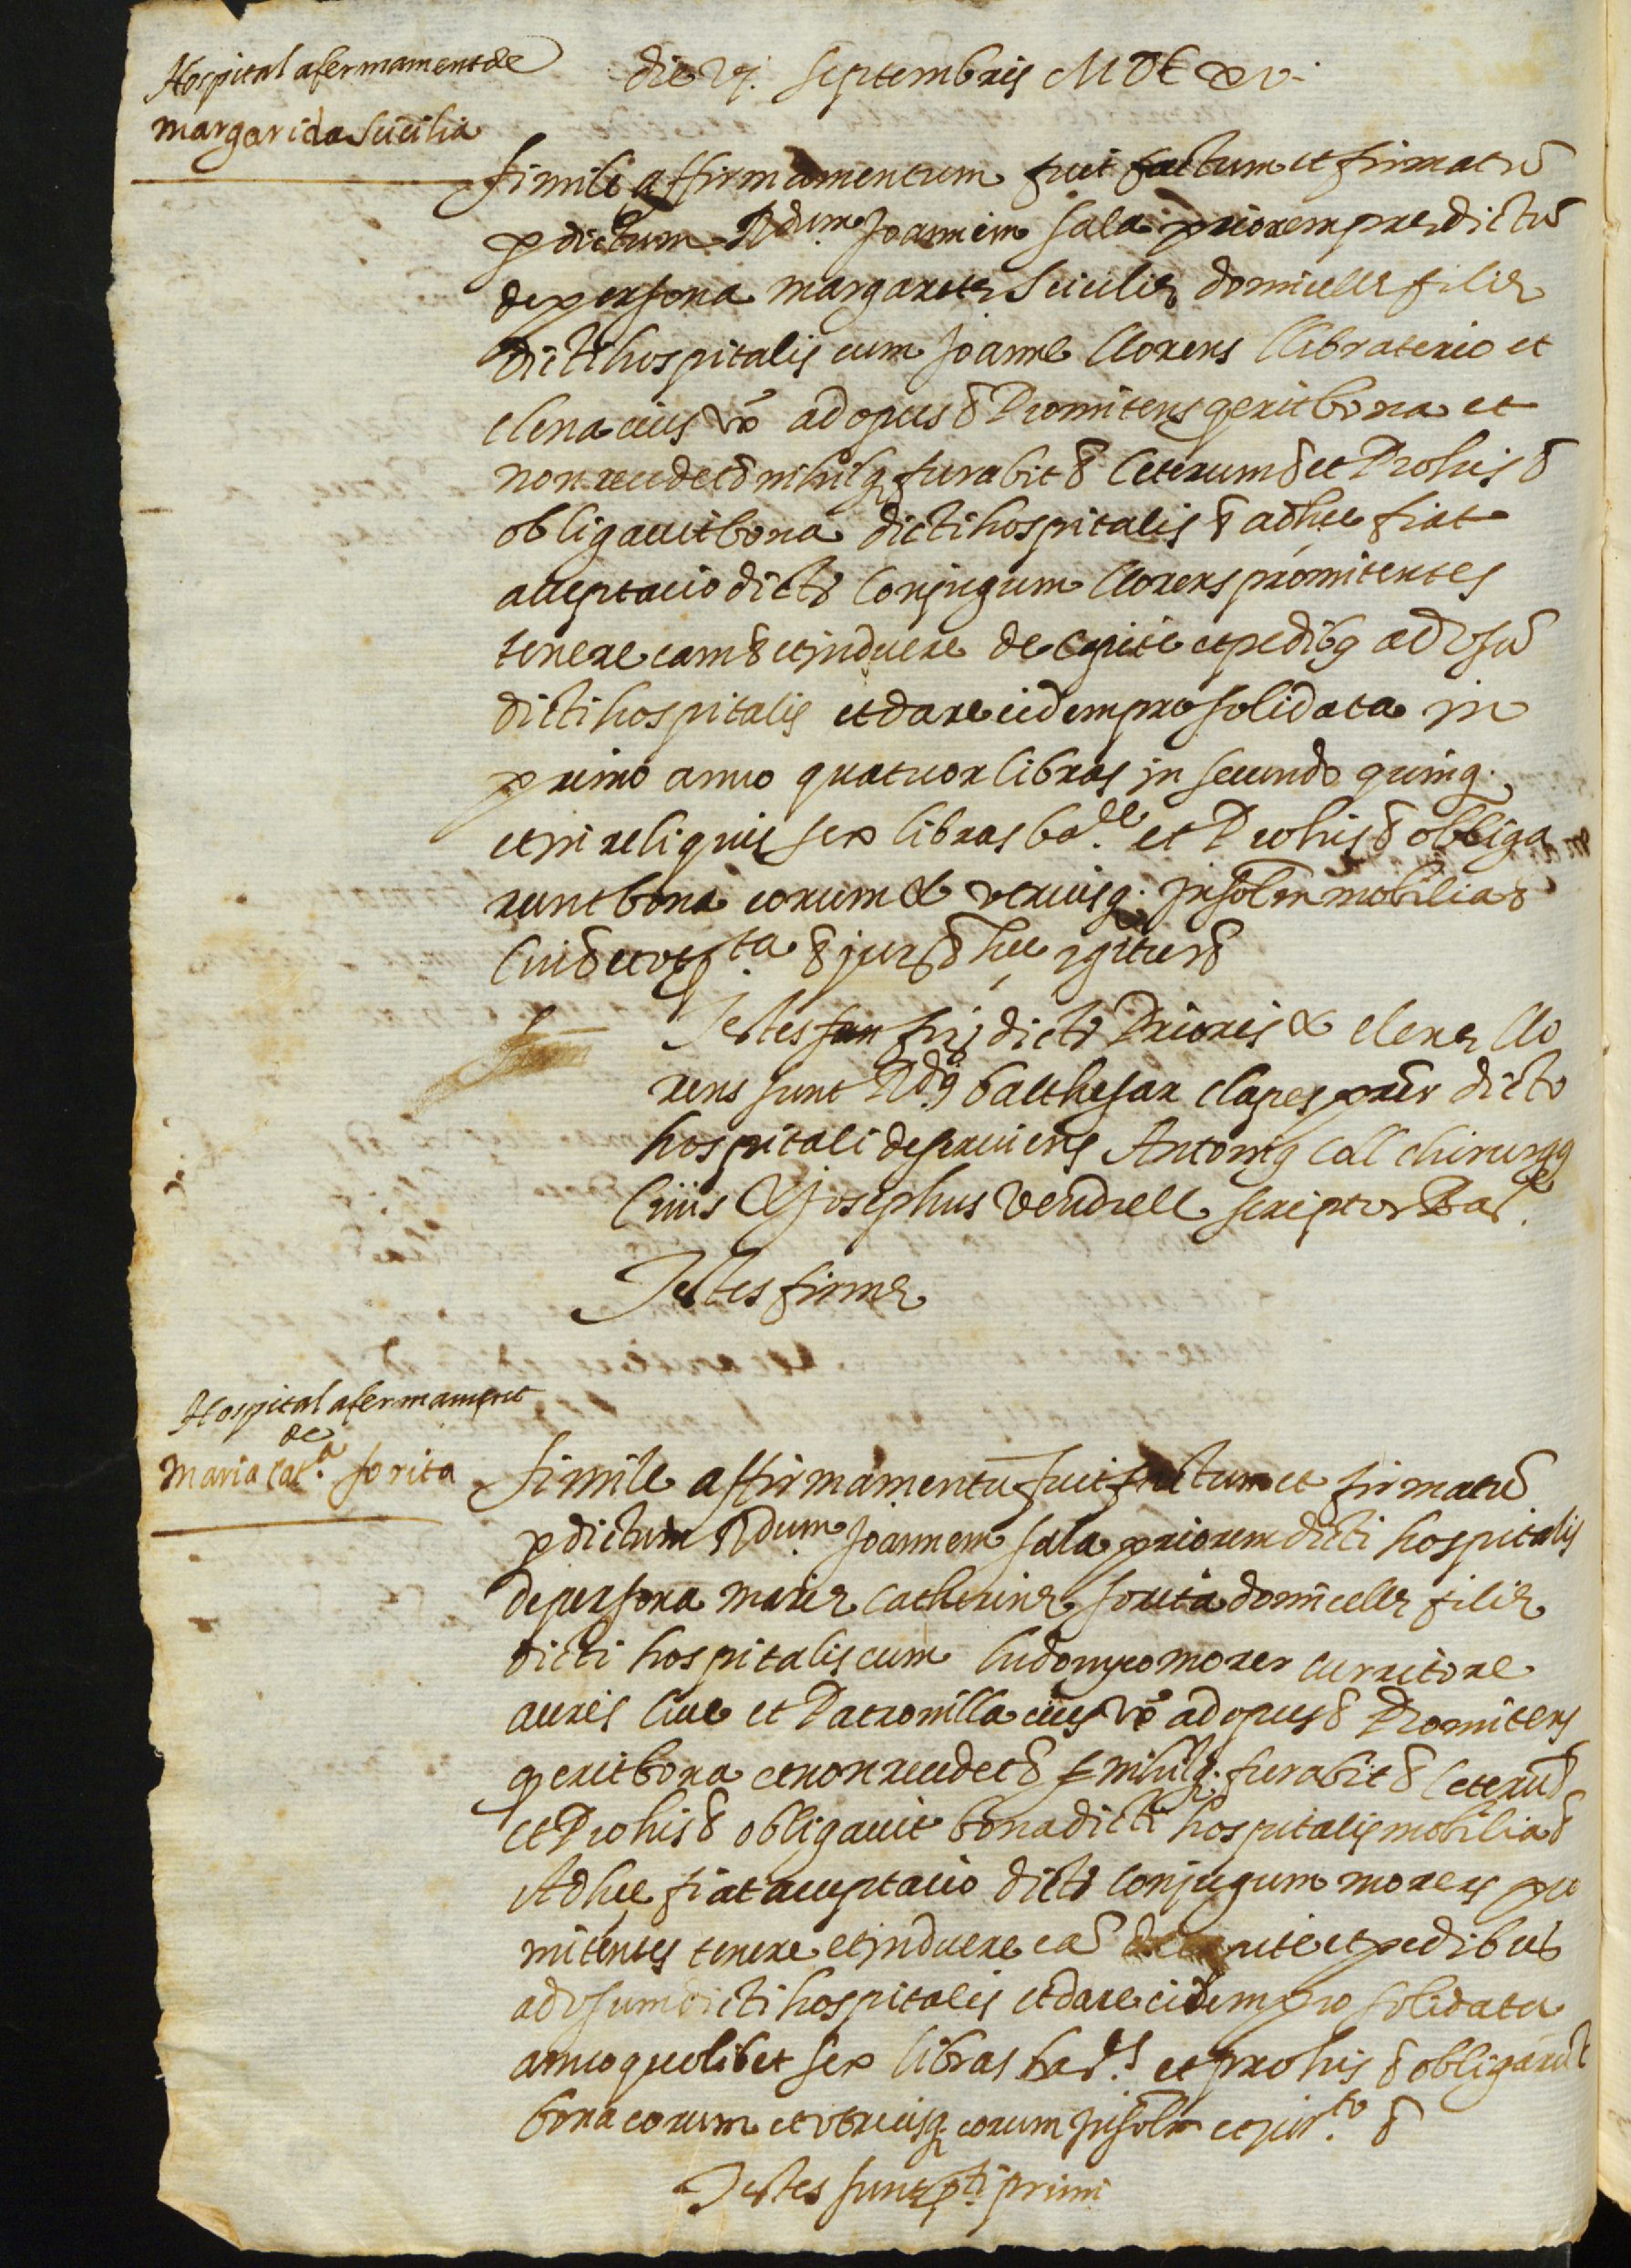 Hospital afermament de
margarida Sicilia
die vj. septembris MDCxv.
Simile affirmamentum fuit factum et firmatū
p dictum Rdum. Joannem Sala priorem predictū
de persona margarete Sicilie domicelle filie
dicti hospitalis cum Joanne Llorens llibraterio et
elena eius vxē ad opus & Promitens q erit bona et
non recedet & nihilq furabit & Ceterum & et Pro his &
obligauit bona dicti hospitalis & ad hec fiat
acceptacio dictō Conjugum Llorens promitentes
tenere eam & et induere de capite et pedibq ad vsū
dicti hospitalis et dare eidem pro solidata in
primo anno quatuor libras in secundo quinq.
et in reliquis sex libras ba.de et Pro his & obliga
runt bona eorum & vtriusq. insolm mobilia &
Cui & et & jur & hec igitur &
Testes fir dictō Prioris & elene Llo
rens sunt Rdq balthesar Clapes prēr dicto
hospitali deseruiens Antoniq Coll chirurgq
Ciuis & Josephus Vendrell scriptor Bar.e
Testes firme
Hospital afermament
de
Maria Cat.a sorita
Simile affirmamentū fuit factum et firmatū
p dictum Rdum. Joannem Sala priorem dicti hospitalis
de persona marie catherine sorita domicelle filie
dicti hospitalis cum ludouyco morer curritore
auris Ciue et Patronilla eius vxē ad opus & Promitens
q erit bona et non recedet & nihilq. furabit & Ceterū &
et Pro his & obligauit bona dicti hospitalis mobilia &
Ad hec fiat acceptacio dictō Conjugum morers pro
mitentes tenere et induere eā de capite et pedibus
ad vsum dicti hospitalis et dare eidem pro solidata
anno quolibet sex libras bar.s et pro his & obligarūt
bona eorum et vtriusq eorum insolm et jur.to &
Testes sunt pti primi